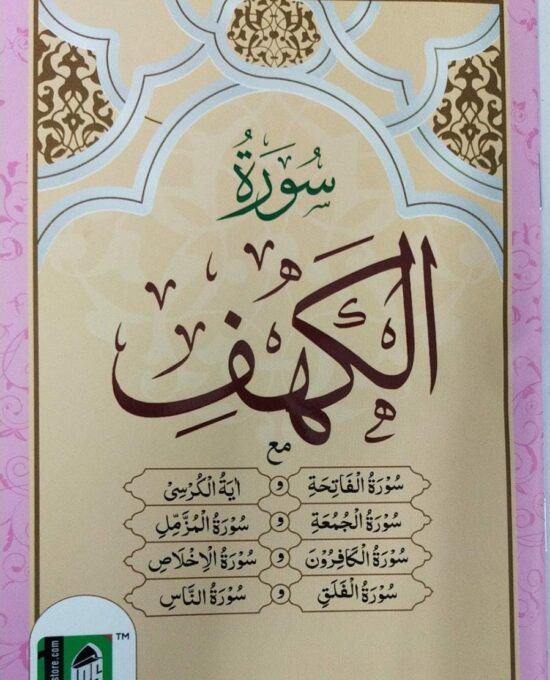 سُورَةُ
الْكَهْفِ
مع
سُورَةُ الْفَاتِحَةِ و اٰيَةُ الْكُرْسِیْ
سُورَةُ الْجُمُعَةِ و سُورَةُ الْمُزَّمِّلِ
سُورَةُ الْكَافِرُوْنَ و سُورَةُ الْاِخْلَاصِ
سُورَةُ الْفَلَقِ و سُورَةُ النَّاسِ
TM
store.com